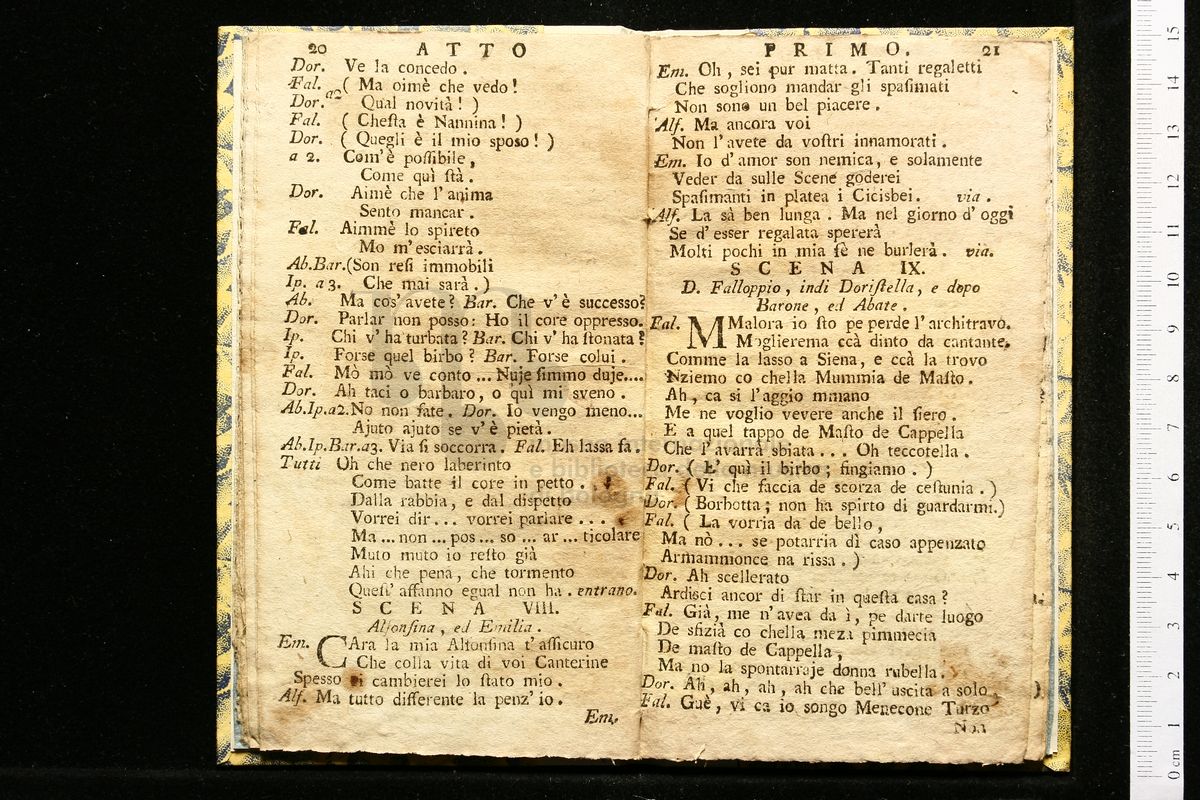 20 ATTO
Dor. Ve la concedo.
Fal. a2 ( Ma oimè che vedo!
Dor. Qual novità! )
Fal. ( Chesta è Nannina! )
Dor. ( Quegli è il mio sposo! )
a 2. Com'è possibile,
Come quì stà.
Dor. Aimè che l'anima
Sento mancar.
Fal. Aimmè lo spireto
Mo m'esciarrà.
Ab.Bar. (Son resi immobili
Ip. a 3. Che mai sarà.)
Ab. Ma cos'avete? Bar. Che v'è successo?
Dor. Parlar non posso: Ho il core oppresso.
Ip. Chi v'ha turbata? Bar. Chi v'ha stonata?
Ip. Forse quel birbo? Bar. Forse colui.
Fal. Mò mò ve conto... Nuje simmo duje....
Dor. Ah taci o barbaro, o quì mi sveno.
Ab.Ip.a2. No non fate. Dor. Io vengo meno...
Ajuto ajuto se v'è pietà.
Ab.Ip.Bar.a3. Via si soccorra. Fal. Eh lassa fa.
Tutti Oh che nero laberinto
Come batte il core in petto..
Dalla rabbia, e dal dispetto
Vorrei dir... vorrei parlare....
Ma... non... pos... so... ar... ticolare
Muto muto io resto già
Ahi che pena, che tormento
Quest'affanno egual non ha. entrano.
SCENA VIII.
Alfonsina, ed Emilia.
Em. CAra la mia Alfonsina t'assicuro
Che colla vita di voi Canterine
Spesso cambierei lo stato mio.
Alf. Ma tutto differente la penz'io.
Em.
PRIMO. 21
Em. Oh, sei pur matta. Tanti regaletti
Che sogliono mandar gli spasimati
Non sono un bel piacere.
Alf. Ma ancora voi
Non l'avete da vostri innamorati.
Em. Io d'amor son nemica, e solamente
Veder da sulle Scene goderei
Spasimanti in platea i Cicisbei. via.
Alf. La sà ben lunga. Ma nel giorno d'oggi
Se d'esser regalata spererà
Molti pochi in mia fè ne burlerà. via.
SCENA IX.
D. Falloppio, indi Doristella, e dopo
Barone, ed Abate.
Fal. MMalora io sto pe perde l'architravo.
Moglierema ccà dinto da cantante.
Comme la lasso a Siena, e ccà la trovo
Nziemo co chella Mummia de Masto.
Ah, ca si l'aggio mmano
Me ne voglio vevere anche il siero.
E a quel tappo de Masto de Cappella
Che l'avarrà sbiata... Oh teccotella.
Dor. ( E' quì il birbo; fingiamo. )
Fal. ( Vi che faccia de scorza de cestunia. )
Dor. ( Borbotta; non ha spirto di guardarmi.)
Fal. ( La vorria da de bello,
Ma nò... se potarria dì caso appenzato
Armammonce na rissa. )
Dor. Ah scellerato
Ardisci ancor di star in questa casa?
Fal. Già, me n'avea da ì, pe darte luogo
De sfizià co chella meza pimmecia
De masto de Cappella,
Ma no la spontarraje donna rubella.
Dor. Ah, ah, ah, ah che bell'uscita a solo
Fal. Guè, vi ca io songo Menecone Turzo
Non